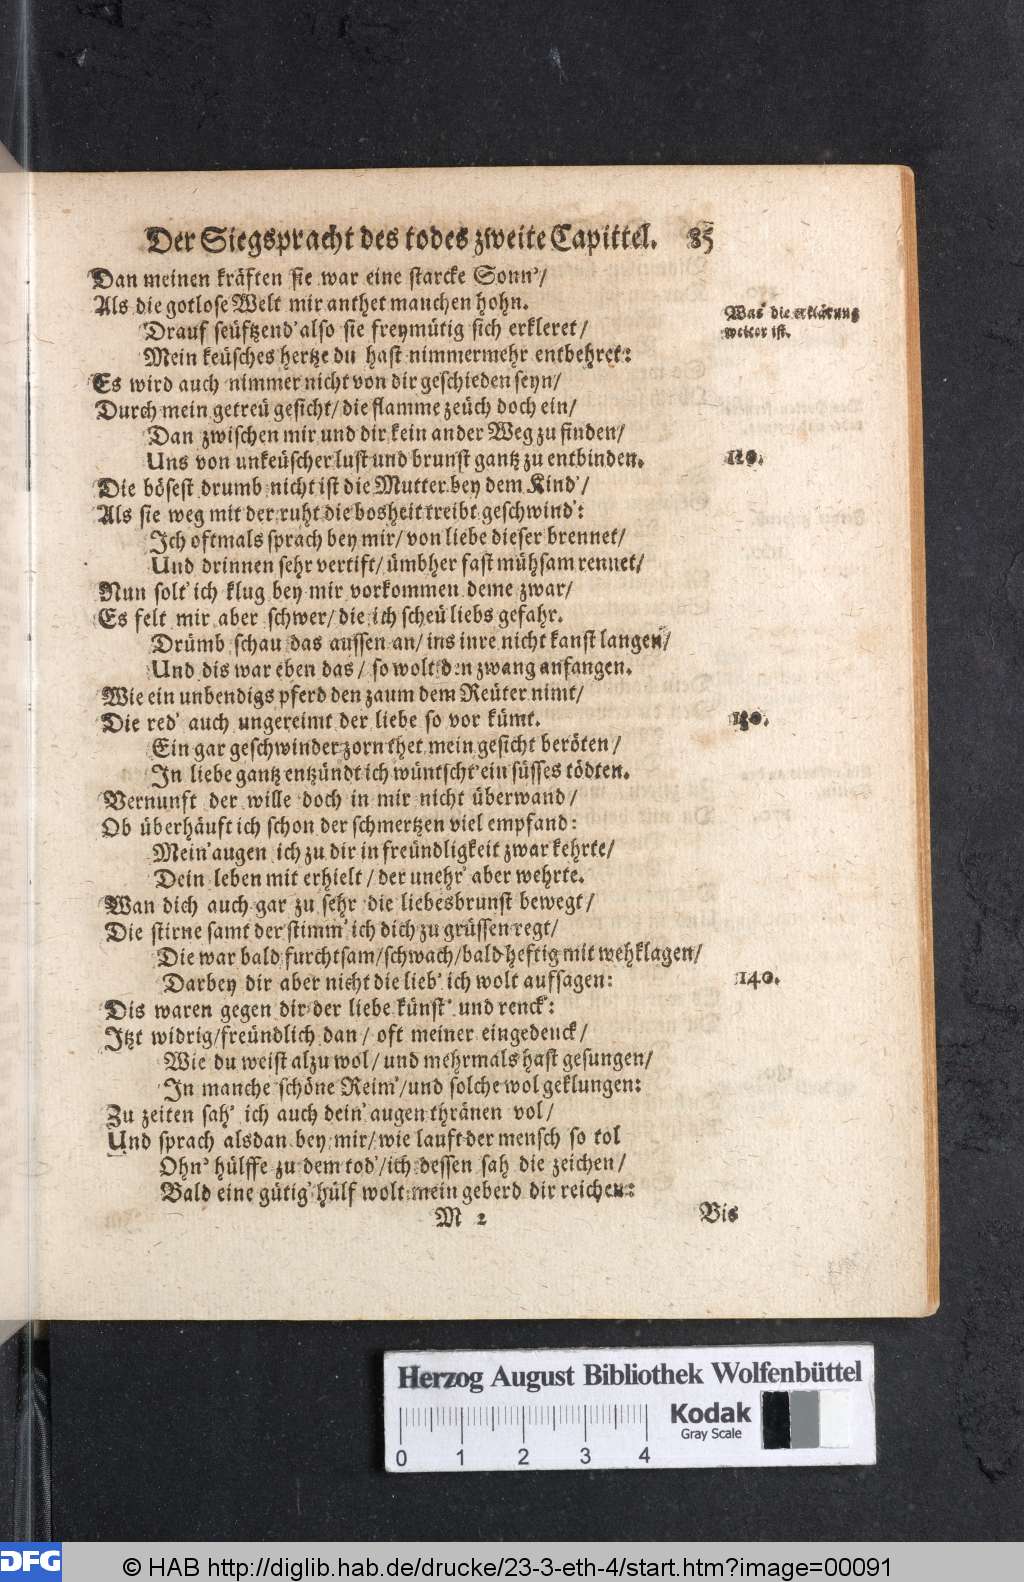 Der Siegspracht des todes zweite Capittel. 85
Dan meinen kräften sie war eine starcke Sonn'/
Als die gotlose Welt mir anthet manchen hohn.
Drauf seüftzend' also sie freymütig sich erkleret/
Was die erklärung
weiter ist.
Mein keüsches hertze du hast nimmermehr entbehret:
Es wird auch nimmer nicht von dir geschieden seyn/
Durch mein getreü gesicht/ die flamme zeüch doch ein/
Dan zwischen mir und dir kein ander Weg zu finden/
Uns von unkeüscher lust und brunst gantz zu entbinden. 120.
Die bösest drumb nicht ist die Mutter bey dem Kind'/
Als sie weg mit der ruht die bosheit treibt geschwind':
Ich oftmals sprach bey mir/ von liebe dieser brennet/
Und drinnen sehr vertift/ ümbher fast mühsam rennet/
Nun solt' ich klug bey mir vorkommen deme zwar/
Es felt mir aber schwer/ die ich scheü liebs gefahr.
Drümb schau das aussen an/ ins inre nicht kanst langen/
Und dis war eben das/ so wolt den zwang anfangen.
Wie ein unbendigs pferd den zaum dem Reüter nimt/
Die red' auch ungereimt der liebe so vor kümt. 130.
Ein gar geschwinder zorn thet mein gesicht beröten/
In liebe gantz entzündt ich wüntscht' ein süsses tödten.
Vernunft der wille doch in mir nicht überwand/
Ob überhäuft ich schon der schmertzen viel empfand:
Mein' augen ich zu dir in freündligkeit zwar kehrte/
Dein leben mit erhielt/ der unehr' aber wehrte.
Wan dich auch gar zu sehr die liebesbrunst bewegt/
Die stirne samt der stimm' ich dich zu grüssen regt/
Die war bald furchtsam/schwach/bald heftig mit wehklagen/
Darbey dir aber nicht die lieb' ich wolt aufsagen: 140.
Dis waren gegen dir der liebe künst' und renck':
Itzt widrig/freündlich dan/ oft meiner eingedenck/
Wie du weist alzu wol/ und mehrmals hast gesungen/
In manche schöne Reim'/und solche wol geklungen:
Zu zeiten sah' ich auch dein' augen thränen vol/
Und sprach alsdan bey mir/ wie lauft der mensch so tol
Ohn' hülffe zu dem tod'/ich dessen sah die zeichen/
Bald eine gütig' hülf wolt mein geberd dir reichen:
M 2 Bis
Herzog August Bibliothek Wolfenbüttel
Kodak
Gray Scale
0 1 2 3 4
DFG © HAB http://diglib.hab.de/drucke/23-3-eth-4/start.htm?image=00091